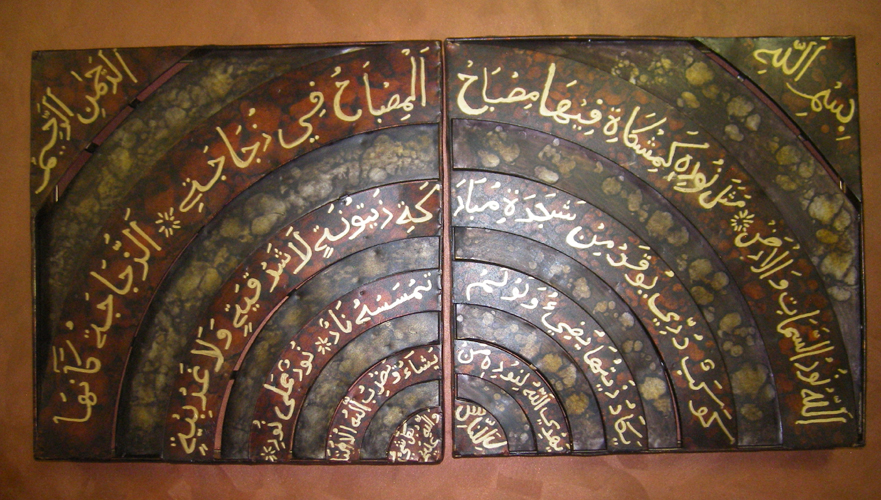 بِسْمِ اللّٰهِ الرَّحْمٰنِ الرَّحِيمِ
اَللّٰهُ نُورُ السَّمٰوَاتِ وَالْاَرْضِ ۞ مَثَلُ نُورِهِ كَمِشْكَاةٍ فِيهَا مِصْبَاحٌ اَلْمِصْبَاحُ فِي زُجَاجَةٍ ۞ اَلزُّجَاجَةُ كَأَنَّهَا
كَوْكَبٌ دُرِّيٌّ يُوقَدُ مِنْ شَجَرَةٍ مُبَارَكَةٍ زَيْتُونَةٍ لَا شَرْقِيَّةٍ وَلَا غَرْبِيَّةٍ
يَكَادُ زَيْتُهَا يُضِيءُ وَلَوْ لَمْ تَمْسَسْهُ نَارٌ ۞ نُورٌ عَلَى نُورٍ ۞
يَهْدِي اللّٰهُ لِنُورِهِ مَنْ يَشَاءُ وَيَضْرِبُ اللّٰهُ الْاَمْثَالَ
لِلنَّاسِ وَاللّٰهُ بِكُلِّ شَيْءٍ